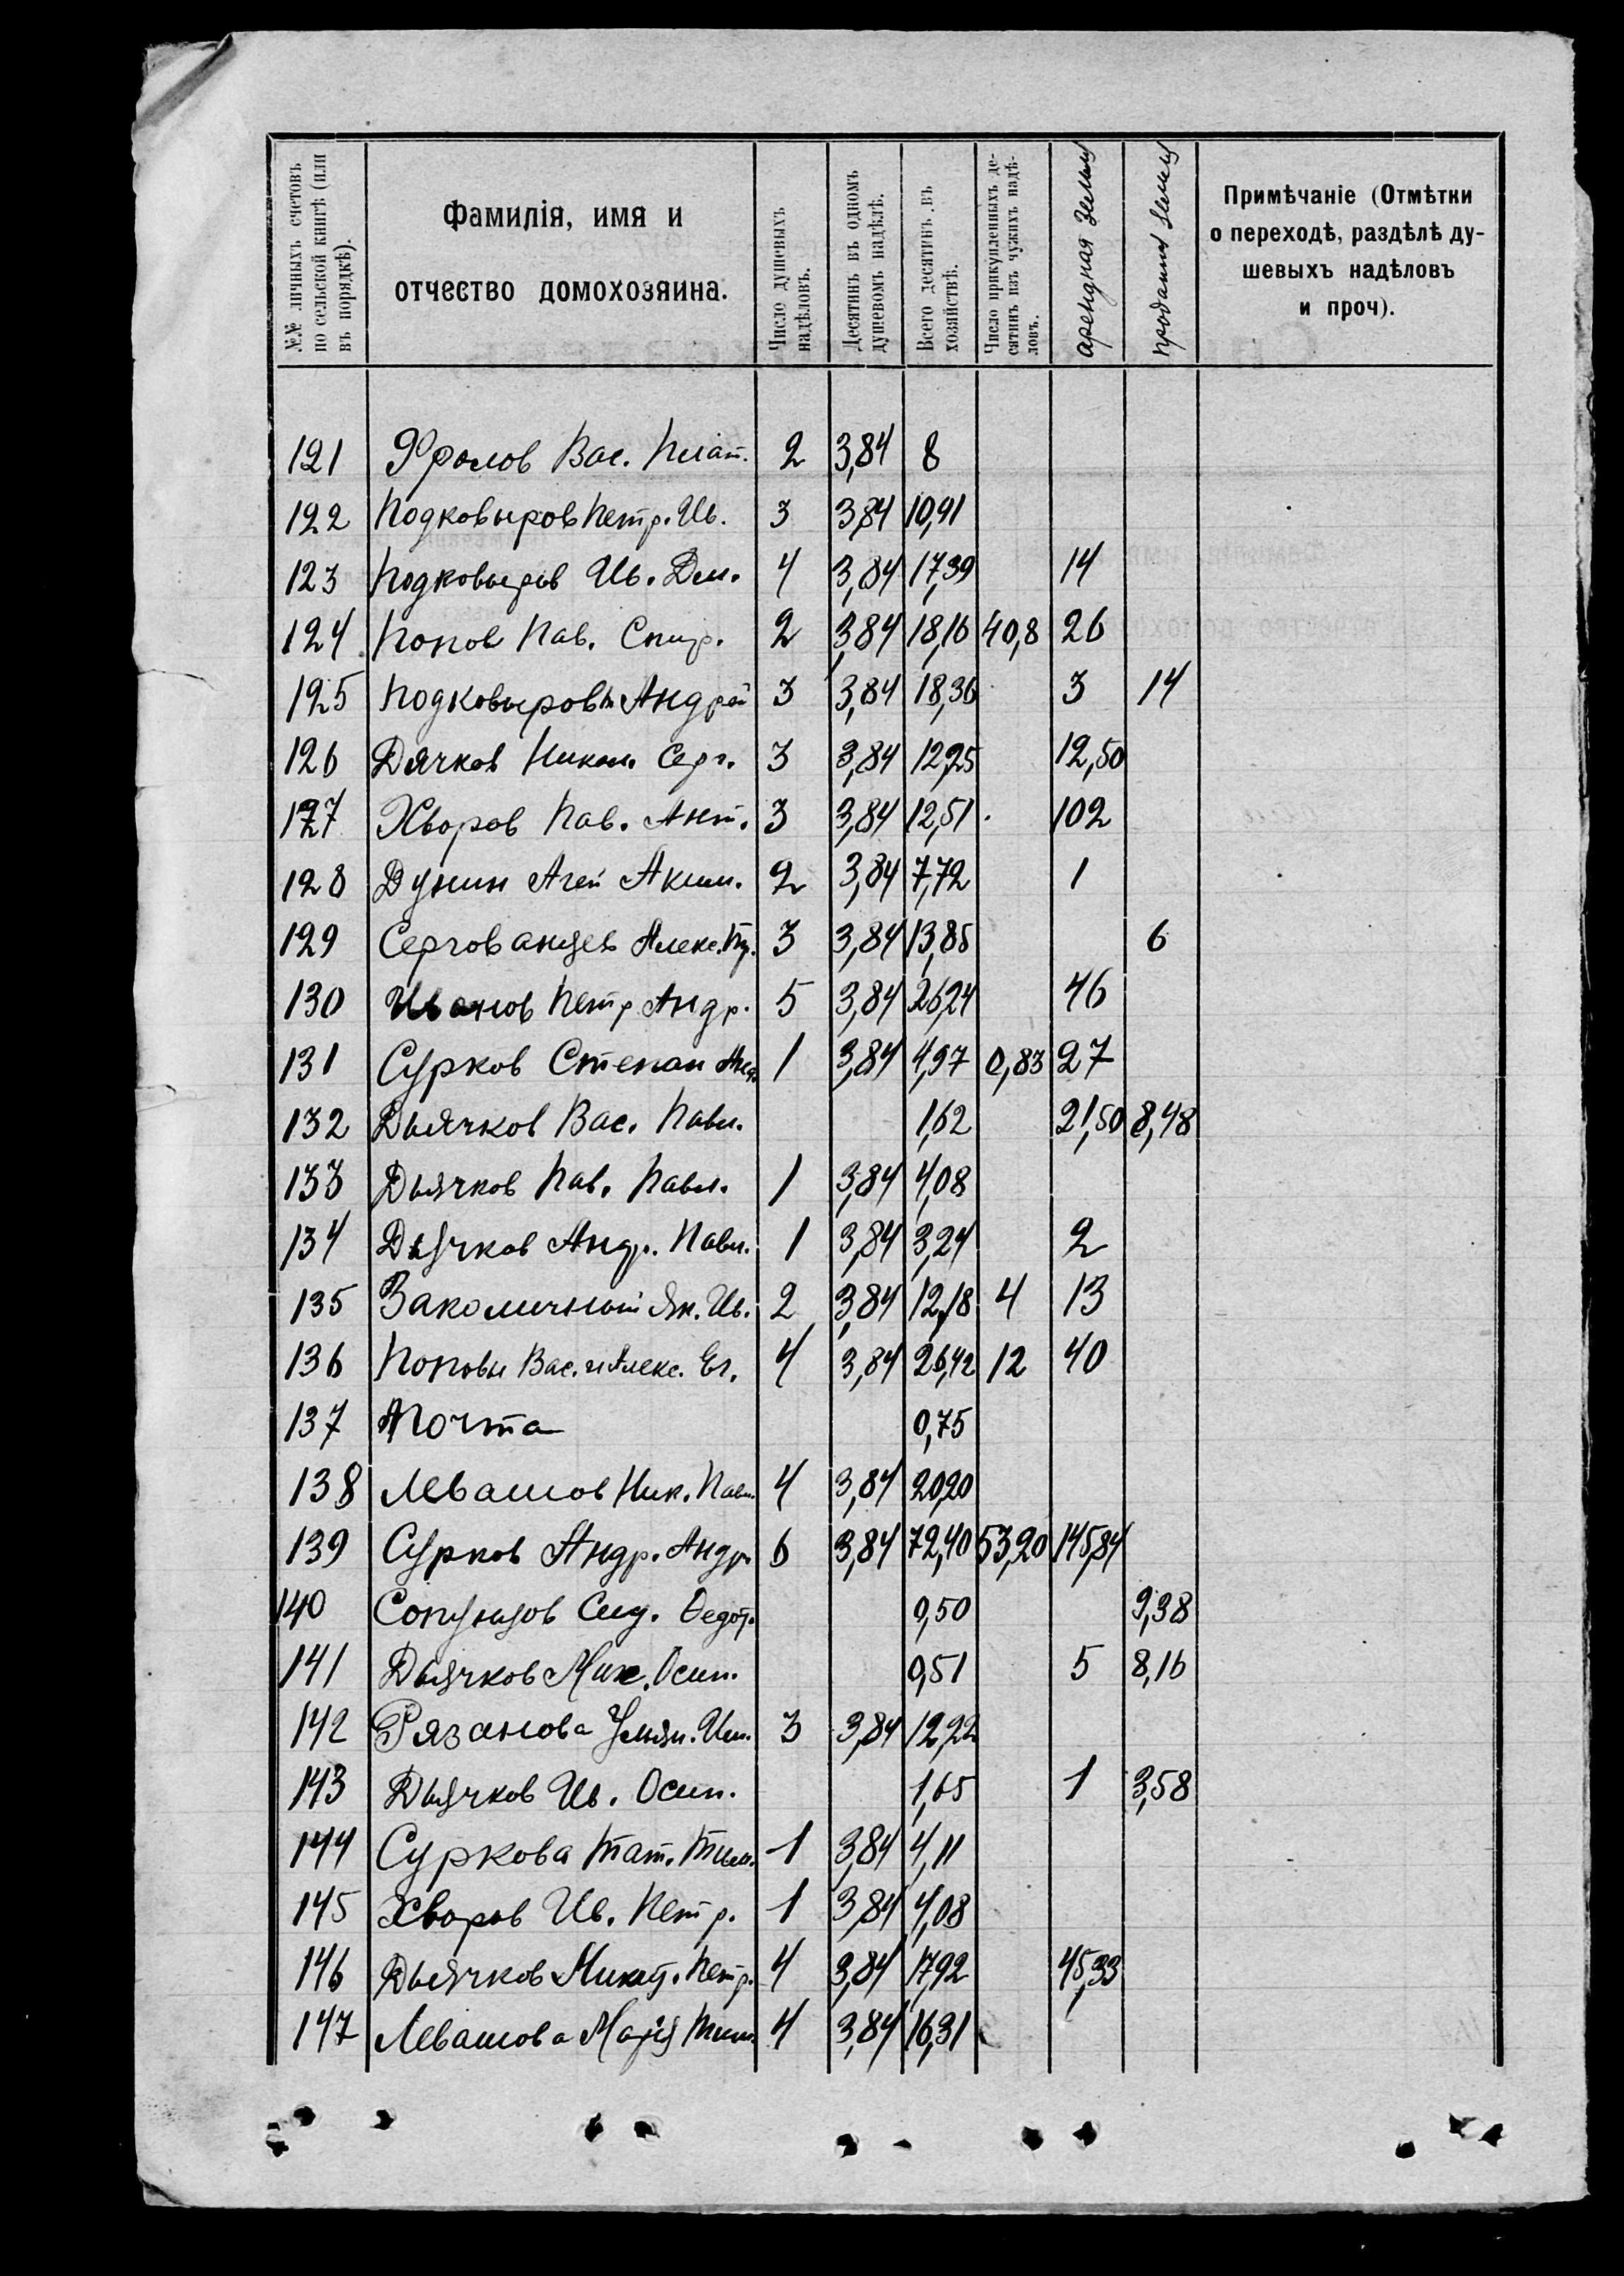 №№ личныхъ счетовъ по сельской книгѣ (или въ порядкѣ).
Фамилія, имя и отчество домохозяина.
Число душевыхъ надѣловъ.
Десятинъ въ одномъ душевомъ надѣлѣ.
Всего десятинъ въ хозяйствѣ.
Число прикупленныхъ десятинъ изъ чужихъ надѣловъ.
арендная земля
проданная земля
Примѣчаніе (Отмѣтки о переходѣ, раздѣлѣ душевыхъ надѣловъ и проч).
121 Фролов Вас. Плат. 2 3,84 8
122 Подковыров Петр. Ив. 3 3,84 10,91
123 Подковыров Ив. Дм. 4 3,84 17,39 14
124 Попов Пав. Спир. 2 3,84 18,16 40,8 26
125 Подковыровы Андрей 3 3,84 18,36 3 14
126 Дячков Никол. Серг. 3 3,84 12,25 12,50
127 Хворов Пав. Ант. 3 3,84 12,51 102
128 Дунин Агей Аким. 2 3,84 7,72 1
129 Сергованцев Алекс. 3 3,84 13,85 6
130 Иванов Петр Андр. 5 3,84 26,24 46
131 Сурков Степан Анд. 1 3,84 4,97 0,83 27
132 Дьячков Вас. Павл. 1,62 21,50 8,48
133 Дьячков Пав. Павл. 1 3,84 4,08
134 Дьячков Андр. Павл. 1 3,84 3,24 2
135 Закомичный Як. Ив. 2 3,84 12,18 4 13
136 Поповы Вас. и Алекс. Ег. 4 3,84 26,42 12 40
137 Почта 0,75
138 Левашов Ник. Павл. 4 3,84 20,20
139 Сурков Андр. Андр. 6 3,84 72,40 53,20 145,84
140 Сопунцов Сид. Федот. 0,50 9,38
141 Дьячков Мих. Осип. 0,51 5 8,16
142 Рязанова Ульян. 3 3,84 12,22
143 Дьячков Ив. Осип. 1,65 1 3,58
144 Суркова Тат. Тим. 1 3,84 4,11
145 Хворов Ив. Петр. 1 3,84 4,08
146 Дьячков Никит. Петр. 4 3,84 17,92 45,33
147 Левашова Марія Тим. 4 3,84 16,31